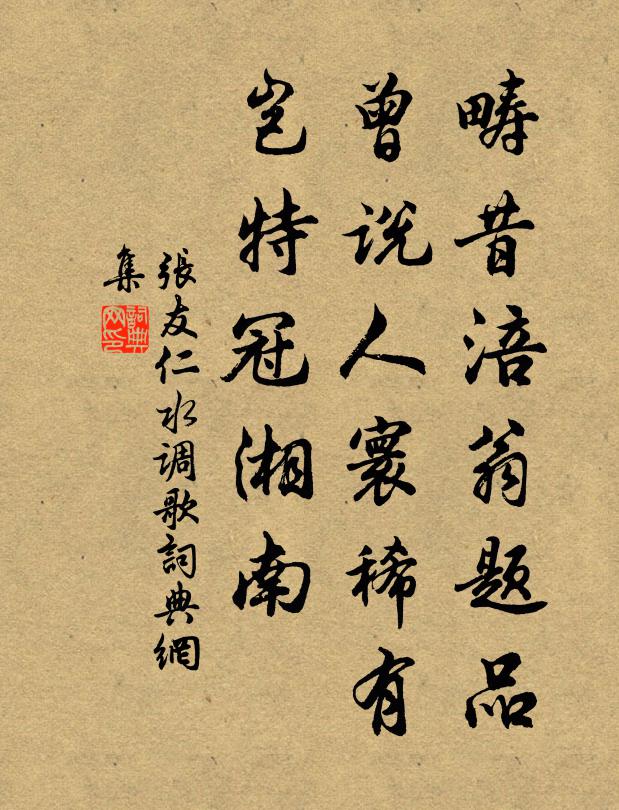 畴昔涪翁题品
曾说人寰稀有
岂特冠湘南
張友仁水调歌詞典網
集
詞典
网印